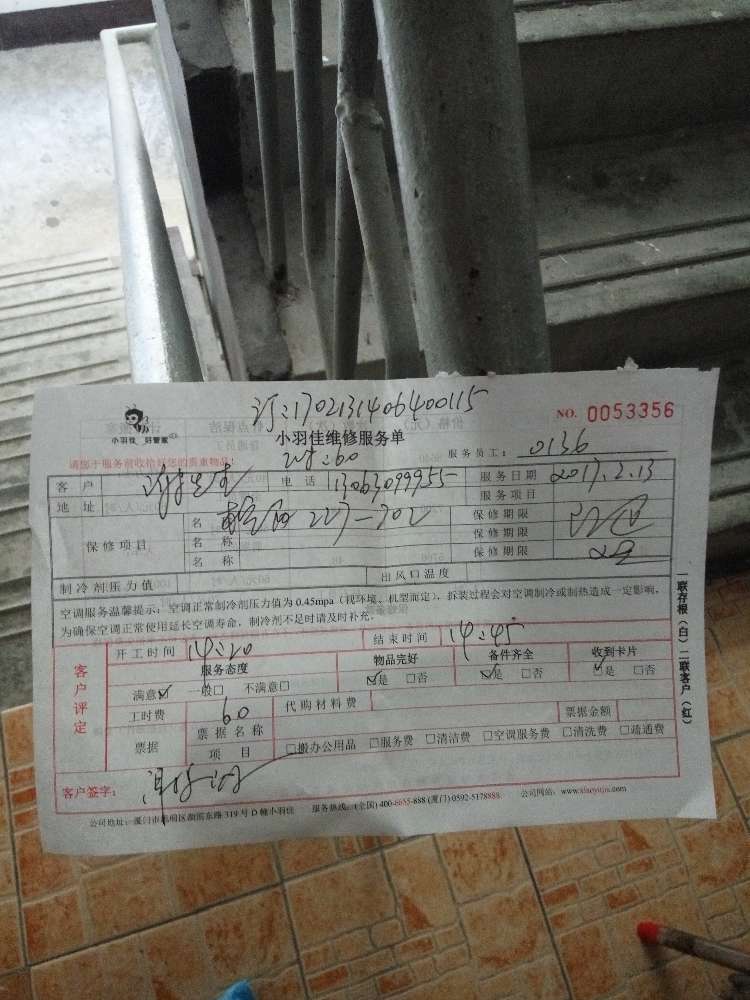 订:1702131406400115
NO. 0053356
小羽佳 好管家
小羽佳维修服务单
请您于服务前收拾好您的贵重物品!
时:60
服务员工: 0136
客户 谢先生 电话 13063099955 服务日期 2017.2.13
地址 服务项目
保修项目 名称 227-702 保修期限
名称 保修期限
名称 保修期限
制冷剂压力值 出风口温度
空调服务温馨提示:空调正常制冷剂压力值为0.45mpa(视环境、机型而定),拆装过程会对空调制冷或制热造成一定影响,
为确保空调正常使用延长空调寿命,制冷剂不足时请及时补充。
客户评定
开工时间 14:20 结束时间 14:45
服务态度 物品完好 备件齐全 收到卡片
满意☑ 一般□ 不满意□ ☑是 □否 ☑是 □否 ☑是 □否
工时费 60 代购材料费
票据 票据名称 票据金额
项目 □搬办公用品 □服务费 □清洁费 □空调服务费 □清洗费 □疏通费
客户签字:
公司地址:厦门市思明区湖滨东路319号D幢小羽佳 服务热线:(全国) 400-8655-888 (厦门) 0592-5178888 公司网站:www.xiaoyujia.com
一联存根(白)二联客户(红)